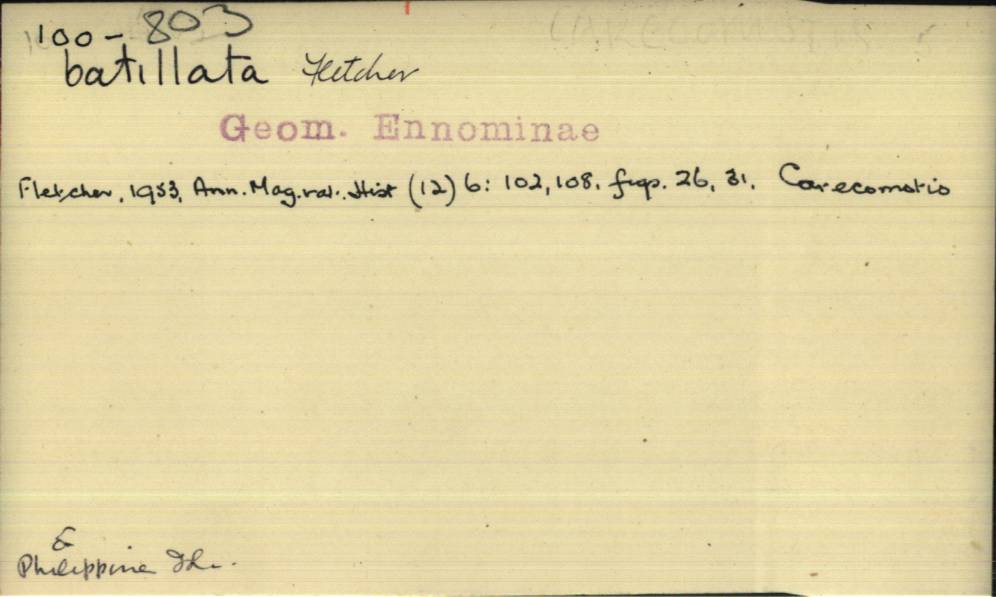 100-803
batillata Fletcher
Geom. Ennominae
Fletcher, 1953, Ann. Mag. nat. Hist (12) 6: 102, 108, figs. 26, 31. Carecomotis
Philippine Is.